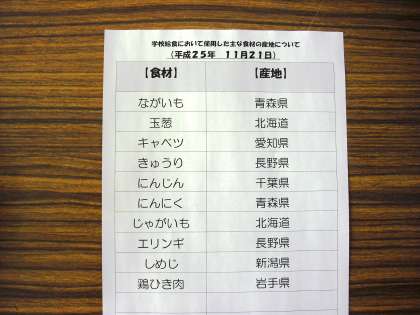 学校給食において使用した主な食材の産地について
(平成25年 11月21日)
【食材】 【産地】
ながいも 青森県
玉葱 北海道
キャベツ 愛知県
きゅうり 長野県
にんじん 千葉県
にんにく 青森県
じゃがいも 北海道
エリンギ 長野県
しめじ 新潟県
鶏ひき肉 岩手県